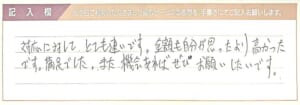 記入欄
対応に対して とても速いです。金額も自分が思ったより高かった
です。満足でした。また機会あれば ぜひ お願いしたいです。